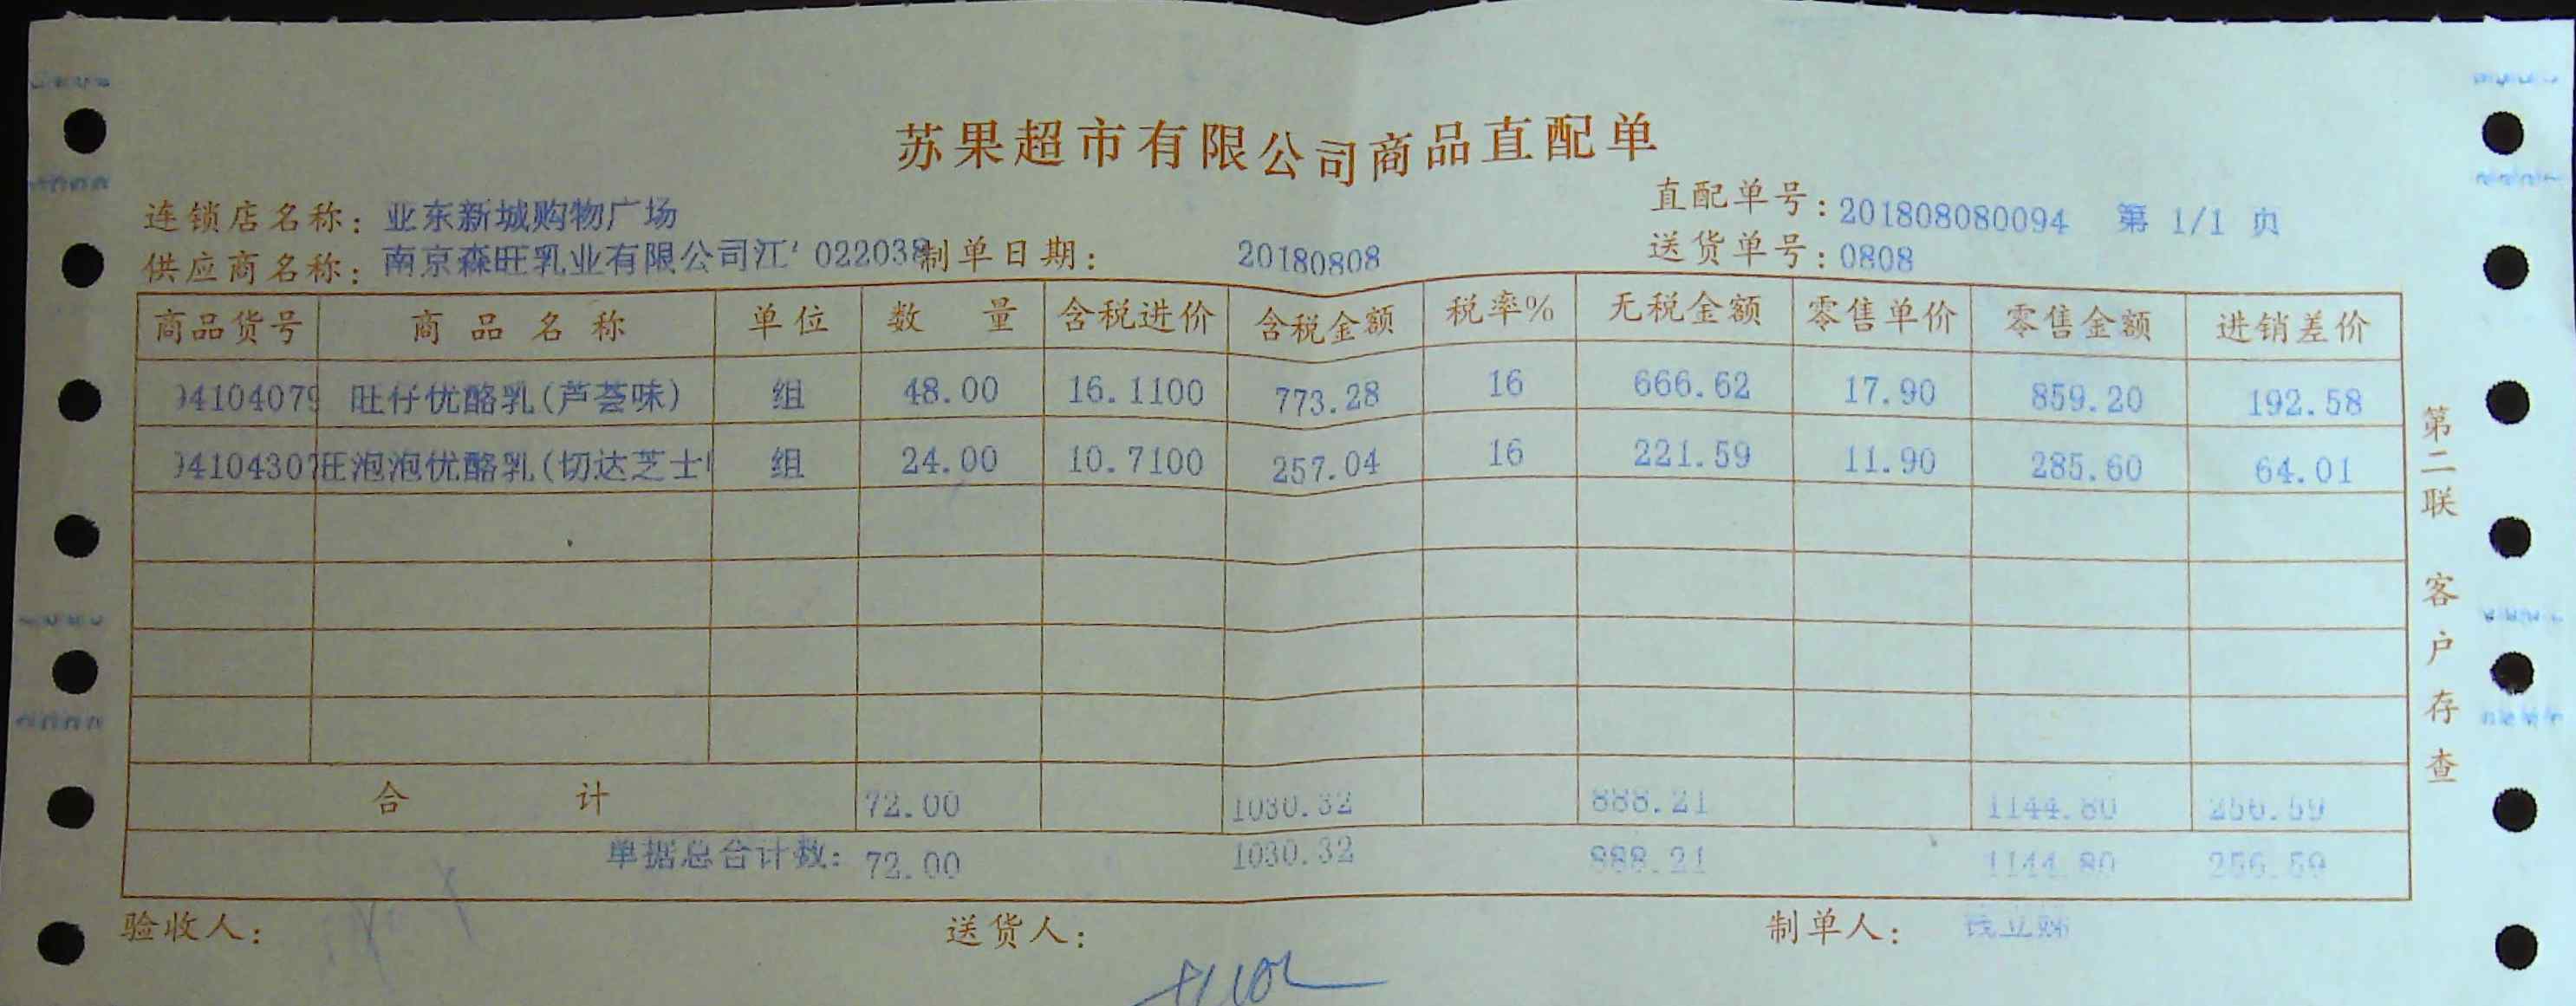 苏果超市有限公司商品直配单
连锁店名称: 亚东新城购物广场 直配单号: 201808080094 第 1/1 页
供应商名称: 南京森旺乳业有限公司江 022038 制单日期: 20180808 送货单号: 0808
商品货号 商品名称 单位 数量 含税进价 含税金额 税率% 无税金额 零售单价 零售金额 进销差价
4104079 旺仔优酪乳(芦荟味) 组 48.00 16.1100 773.28 16 666.62 17.90 859.20 192.58
4104307 旺泡泡优酪乳(切达芝士 组 24.00 10.7100 257.04 16 221.59 11.90 285.60 64.01
合计 72.00 1030.32 888.21 1144.80 256.59
单据总合计数: 72.00 1030.32 888.21 1144.80 256.59
验收人: 送货人: 制单人:
第二联 客户存查